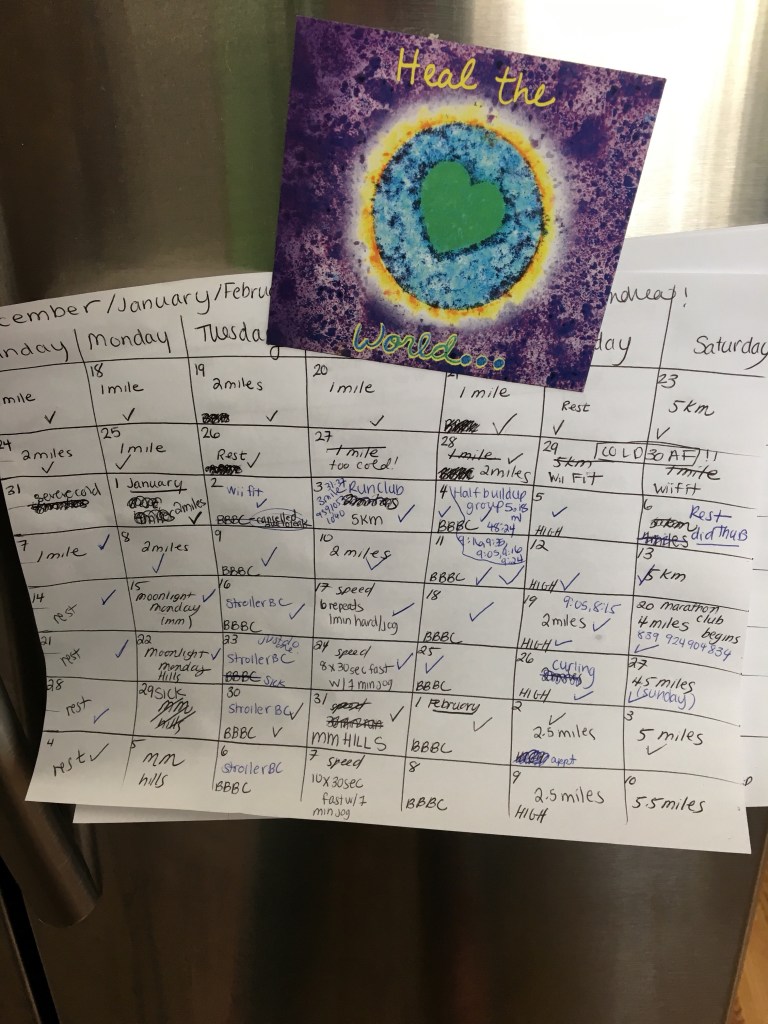 Heal the
World...
cember/January/Februa
ndrea!
nday
Monday
Tuesda
day
Saturday
mile
18
1 mile
19
2 miles
20
1 mile
21
1 mile
Rest
23
5 km
24
2 miles
25
1 mile
26
Rest
27
1 mile
too cold!
28
1 mile
BBBC
2 miles
29
5km
Wii Fit
COLD AF!!
30
1 mile
wii fit
31
severe cold
1 January
2 miles
2
Wii fit
BBBC - cancelled
3
Run Club
5km
4
Half buildup
group
48:24
BBBC
5
HIGH
6
Rest
did Thurs
7
1 mile
8
2 miles
9
BBBC
10
2 miles
11
9:05, 9:16
9:24
BBBC
12
HIGH
13
5 km
14
rest
15
moonlight
monday
1mm
16
Stroller BC
BBBC
17 speed
6 repeats
1 min hard/jog
18
BBBC
19
9:05, 8:15
2 miles
HIGH
20 marathon
club
4 miles
begins
839 924 909 834
21
rest
22
moonlight
monday
Hills
23
Just do
one
Stroller BC
BBBC sick
24
speed
8 x 30 sec fast
w/ 1 min jog
25
BBBC
26
curling
HIGH
27
4.5 miles
(Sunday)
28
rest
29 sick
mm
hills
30
Stroller BC
BBBC
31
speed
mm HILLS
1 February
BBBC
2
2.5 miles
appt
3
5 miles
4
rest
5
mm
hills
6
Stroller BC
BBBC
7 speed
10 x 30 sec
fast w/ 1
min jog
8
BBBC
9
2.5 miles
HIGH
10
5.5 miles